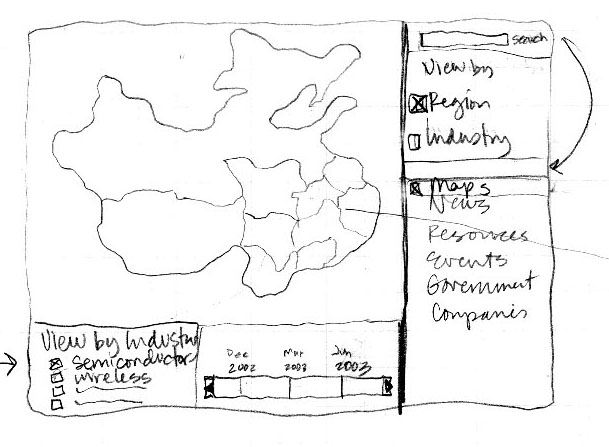 search
View by
Region
Industry
Maps
News
Resources
Events
Government
Companies
View by Industry
semiconductors
wireless
Dec 2002
Mar 2003
Jun 2003